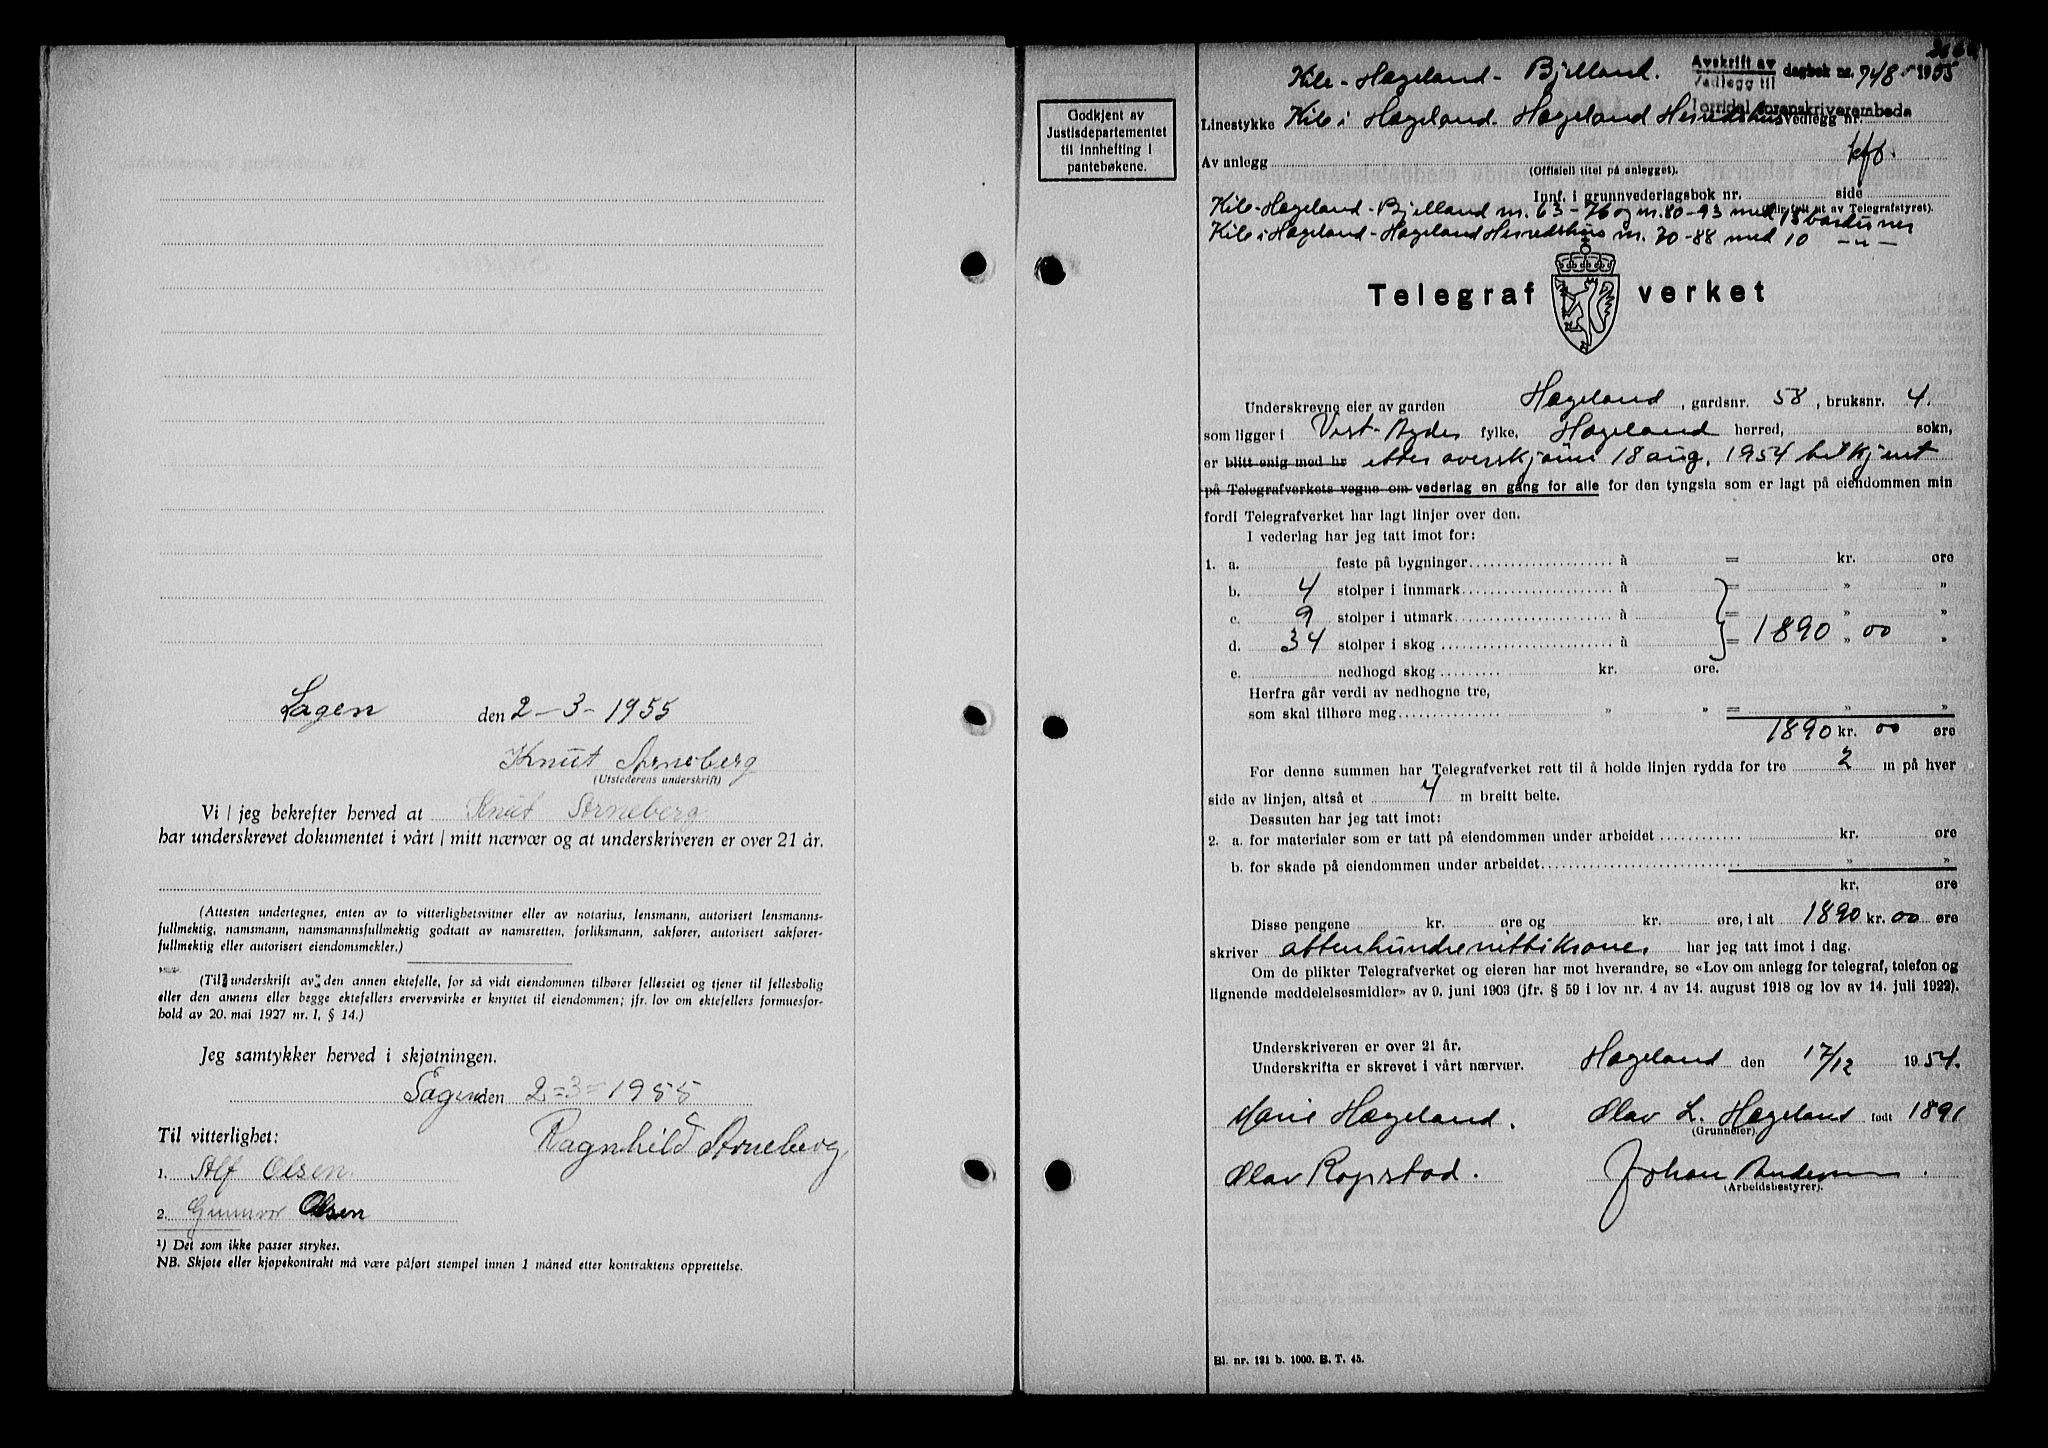 Lagen den 2-3-1955
Knut Arneberg
(Utstederens underskrift)
Vi / jeg bekrefter herved at Knut Arneberg
har underskrevet dokumentet i vårt / mitt nærvær og at underskriveren er over 21 år.
(Attesten undertegnes, enten av to vitterlighetsvitner eller av notarius, lensmann, autorisert lensmanns-
fullmektig, namsmann, namsmannsfullmektig godtatt av namsretten, forliksmann, sakfører, autorisert sakfører-
fullmektig eller autorisert eiendomsmekler.)
(Til underskrift av den annen ektefelle, for så vidt eiendommen tilhører felleseiet og tjener til fellesbolig
eller den annens eller begge ektefellers ervervsvirke er knyttet til eiendommen; jfr. lov om ektefellers formuesfor-
hold av 20. mai 1927 nr. 1, § 14.)
Jeg samtykker herved i skjøtningen.
Lagen den 2-3-1955
Til vitterlighet: Ragnhild Arneberg
1. Alf Olsen
2. Gunnvor Olsen
¹) Det som ikke passer strykes.
NB. Skjøte eller kjøpekontrakt må være påført stempel innen 1 måned etter kontraktens opprettelse.
Godkjent av
Justisdepartementet
til innhefting i
pantebøkene.
Kile - Hægeland - Bjelland. Avskrift av dagbok nr. 948 1955
Vedlegg til
Torridal sorenskriverembede
Linestykke Kile i Hægeland - Hægeland Herredshus vedlegg nr.
Av anlegg
(Offisiell titel på anlegget).
Innf. i grunnvederlagsbok nr. side
(Blir fylt ut av Telegrafstyret).
Kile-Hægeland-Bjelland nr. 63-76 og nr. 80-93 med 13 barduner
Kile i Hægeland-Hægeland Herredshus nr. 70-88 med 10 -"-
Telegrafverket
Underskrevne eier av garden Hægeland, gardsnr. 58, bruksnr. 4.
som ligger i Vest-Agder fylke, Hægeland herred, sokn,
er blitt enig med hr etter overskjønn 18 aug. 1954 tilkjent
på Telegrafverkets vegne om vederlag en gang for alle for den tyngsla som er lagt på eiendommen min
fordi Telegrafverket har lagt linjer over den.
I vederlag har jeg tatt imot for:
1. a. feste på bygninger à = kr. øre
b. 4 stolper i innmark à = " "
c. 9 stolper i utmark à = " "
d. 34 stolper i skog à = 1890 " 00 "
e. nedhogd skog kr. øre.
Herfra går verdi av nedhogne tre,
som skal tilhøre meg " " = " "
1890 kr. 00 øre
For denne summen har Telegrafverket rett til å holde linjen rydda for tre 2 m på hver
side av linjen, altså et 4 m breitt belte.
Dessuten har jeg tatt imot:
2. a. for materialer som er tatt på eiendommen under arbeidet kr. øre
b. for skade på eiendommen under arbeidet " "
kr. øre
Disse pengene kr. øre og kr. øre, i alt 1890 kr. 00 øre
skriver attenhundrenittikroner har jeg tatt imot i dag.
Om de plikter Telegrafverket og eieren har mot hverandre, se «Lov om anlegg for telegraf, telefon og
lignende meddelelsesmidler» av 9. juni 1903 (jfr. § 59 i lov nr. 4 av 14. august 1918 og lov av 14. juli 1922).
Underskriveren er over 21 år.
Underskrifta er skrevet i vårt nærvær. Hægeland den 17/12 1954.
Marie Hægeland. Olav L. Hægeland født 1891
(Grunneier).
Olav Ropstad. Johan Andersen.
(Arbeidsbestyrer).
Bl. nr. 121 b. 1000. B. T. 45.